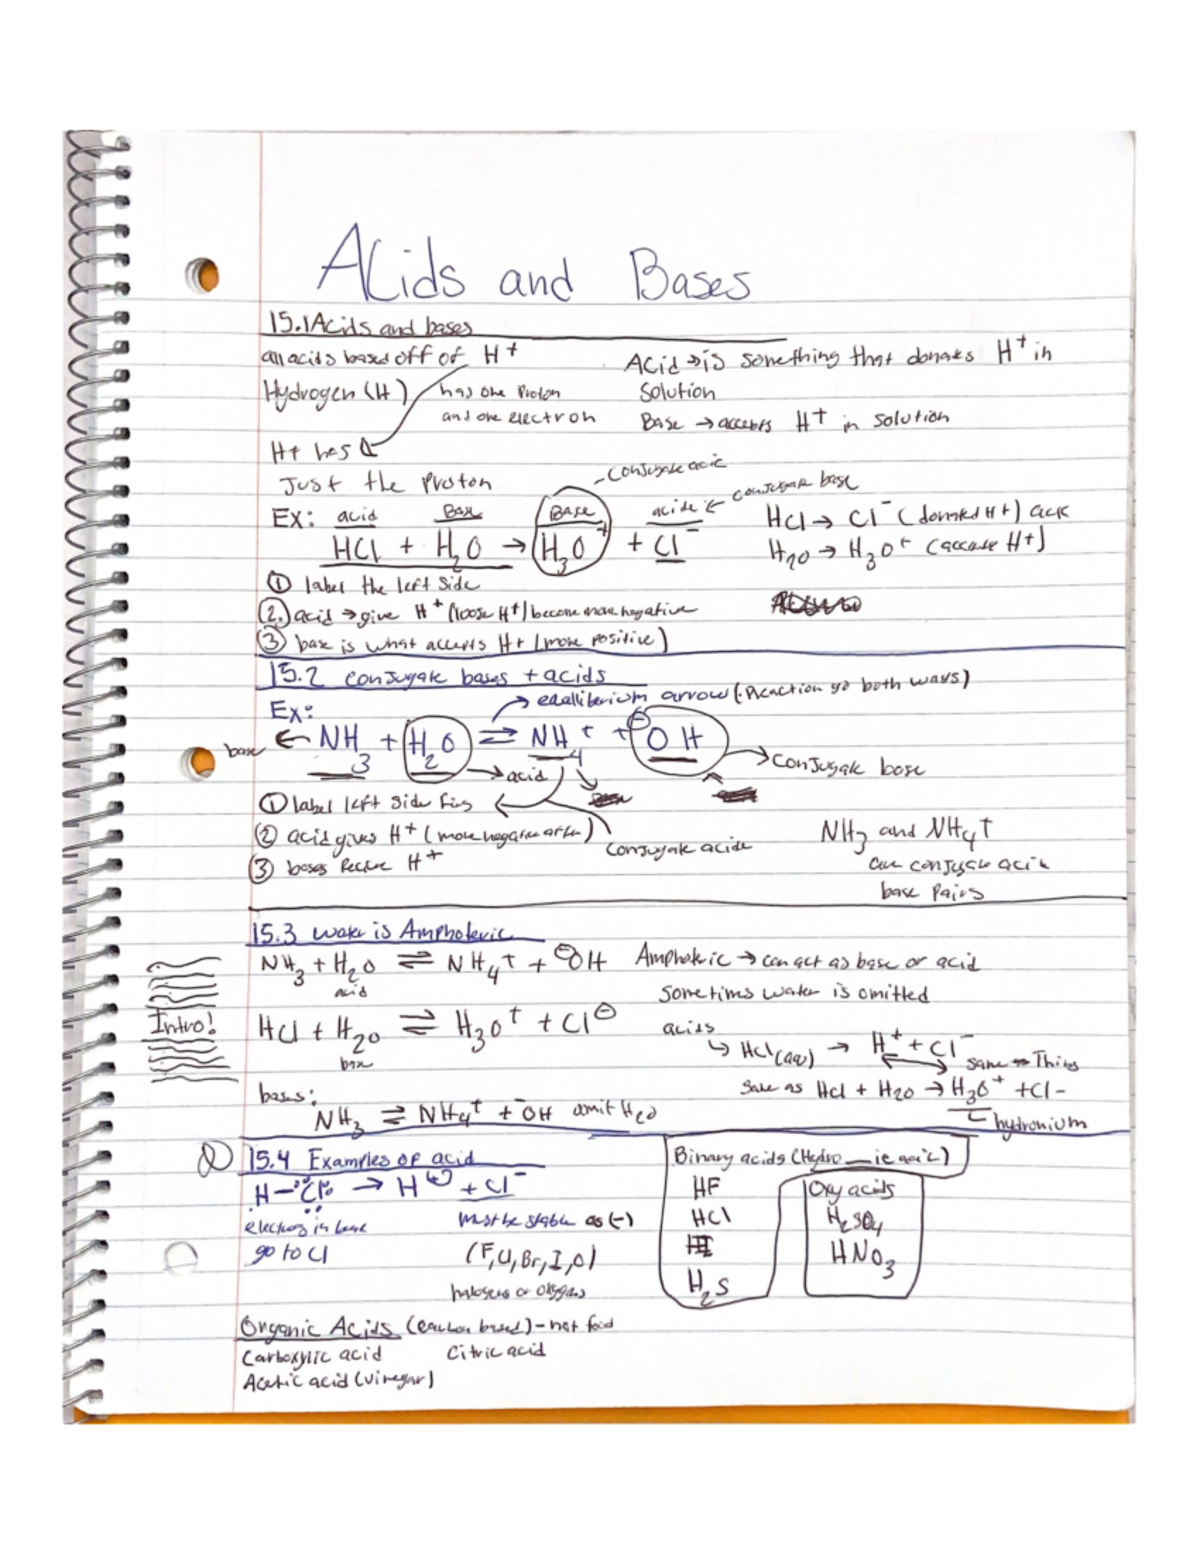 Acids and Bases
15.1 Acids and bases
all acids based off of H+
Acid → is something that donates H+ in
Hydrogen (H) has one Proton
Solution
and one electron
Base → accepts H+ in solution
H+ has
Just the Proton
conjugate acid
conjugate base
Ex: acid Base Base acid
HCl + H2O → H3O+ + Cl-
HCl → Cl- (donated H+)
H2O → H3O+ H+)
① label the left side
②. acid → give H+ (loose H+) become more negative
③ base is what accepts H+ (more positive)
15.2 conjugate bases + acids
equilliberium arrow (Reaction go both ways)
Ex:
base ← NH3 + H2O ⇌ NH4+ + ⊖OH
→ conjugate base
→ acid
① label left side
② acid gives H+ (more negative after)
conjugate acid
NH3 and NH4+
③ bases H+
are conjugate acid
base pairs
15.3 Water is Amphoteric
NH3 + H2O ⇌ NH4+ + ⊖OH
acid
Amphoteric → can act as base or acid
Sometimes water is omitted
Intro!
HCl + H2O ⇌ H3O+ + Cl⊖
base
acids
↳ HCl(aq) → H+ + Cl-
same Thing
Same as HCl + H2O → H3O+ + Cl-
hydronium
bases:
NH3 ⇌ NH4+ + -OH omit H2O
15.4 Examples of acid
Binary acids (Hydro __ ic acid)
H-Cl → H+ + Cl-
electrons in
go to Cl
Must be stable as (-)
(F, Cl, Br, I, O)
halogens or oxygens
HF
HCl
H2S
Oxy acids
H2SO4
HNO3
Organic Acids (carbon based) - not food
Carboxylic acid Citric acid
Acetic acid (vinegar)